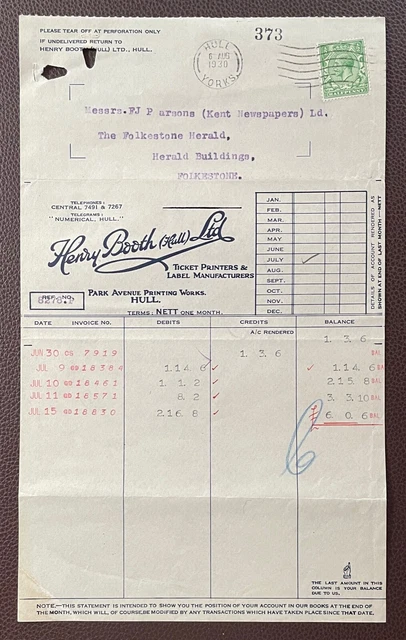 PLEASE TEAR OFF AT PERFORATION ONLY
IF UNDELIVERED RETURN TO
HENRY BOOTH (HULL) LTD., HULL.
373
HULL
6 AUG
1930
YORKS.
HALFPENNY
Messrs.FJ P arsons (Kent Newspapers) Ld.
The Folkestone Herald,
Herald Buildings,
FOLKESTONE.
TELEPHONES:
CENTRAL 7491 & 7267
TELEGRAMS:
"NUMERICAL, HULL."
Henry Booth (Hull) Ltd
TICKET PRINTERS &
LABEL MANUFACTURERS
PARK AVENUE PRINTING WORKS.
HULL.
TERMS: NETT ONE MONTH.
REF. NO.
JAN.
FEB.
MAR.
APR.
MAY
JUNE
JULY
AUG.
SEPT.
OCT.
NOV.
DEC.
DETAILS OF ACCOUNT RENDERED AS
SHOWN AT END OF LAST MONTH — NETT
DATE INVOICE NO. DEBITS CREDITS BALANCE
A/C RENDERED
1. 3. 6
JUN 30 7919 1. 3. 6 BAL
JUL 9 18384 1.14. 6 1.14. 6 BA
JUL 10 18461 1. 1. 2 2.15. 8 BAL
JUL 11 18571 8. 2 3. 3.10 BAL
JUL 15 18830 2.16. 8 6. 0. 6 BAL
THE LAST AMOUNT IN THIS
COLUMN IS YOUR BALANCE
DUE TO US.
NOTE.—THIS STATEMENT IS INTENDED TO SHOW YOU THE POSITION OF YOUR ACCOUNT IN OUR BOOKS AT THE END OF
THE MONTH, WHICH WILL, OF COURSE,BE MODIFIED BY ANY TRANSACTIONS WHICH HAVE TAKEN PLACE SINCE THAT DATE.